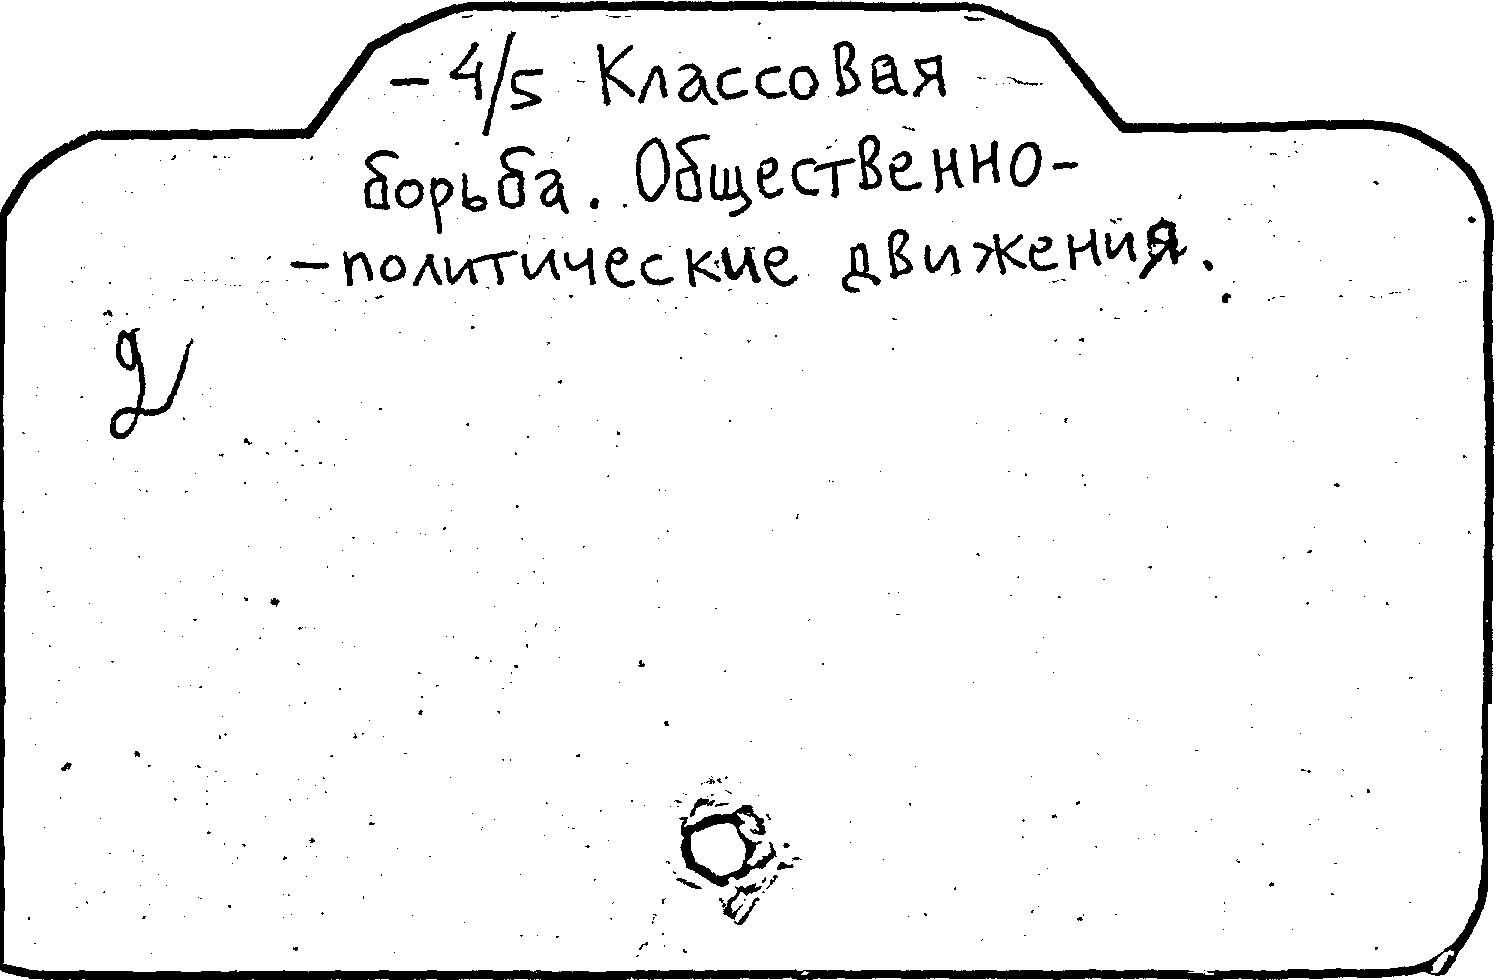 - 4/5 Классовая
борьба. Общественно-
-политические движения.